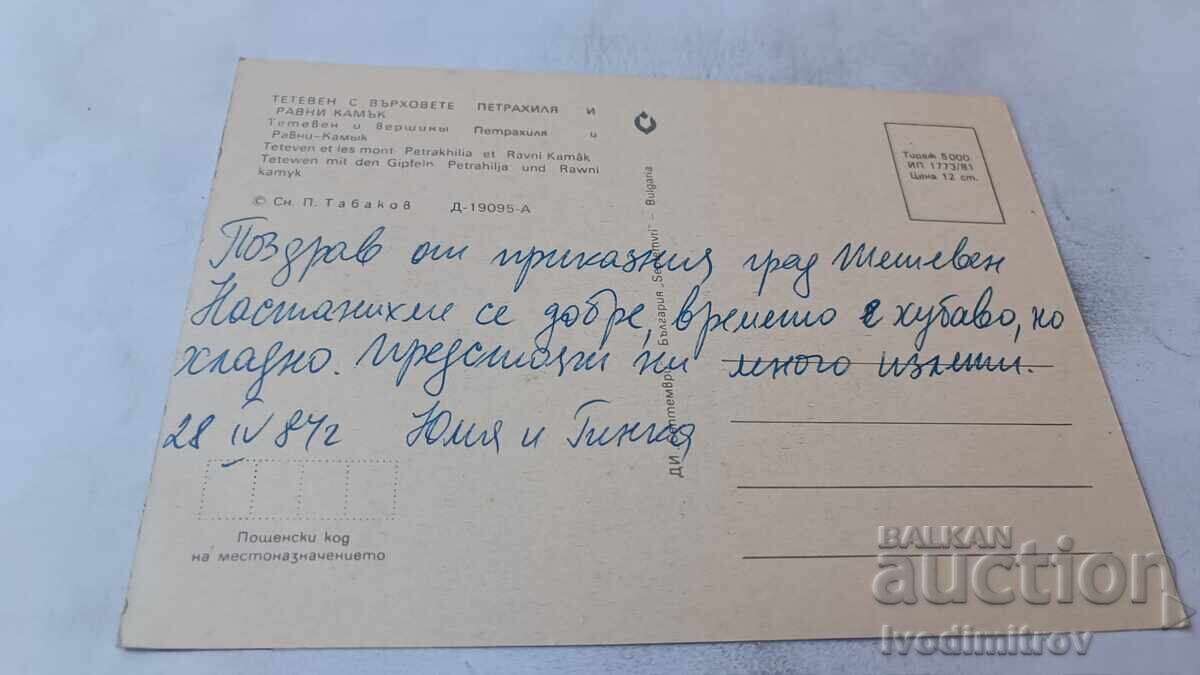 ТЕТЕВЕН С ВЪРХОВЕТЕ ПЕТРАХИЛЯ И
РАВНИ КАМЪК
Тетевен и вершины Петрахиля и
Равни-Камык
Teteven et les mont Petrakhilia et Ravni Kamâk
Tetewen mit den Gipfeln Petrahilja und Rawni
kamyk
© Сн. П. Табаков Д-19095-А
Тираж 5000
ИП 1773/81
Цена 12 ст.
ДИ „Септември“ България „Septemvri“ – Bulgaria
Поздрав от приказния град Тетевен
Настанихме се добре, времето е хубаво, но
хладно. Предстоят ни много излети.
28 IV 84г Юлия и Гинка
Пощенски код
на местоназначението
BALKAN
auction
Ivodimitrov